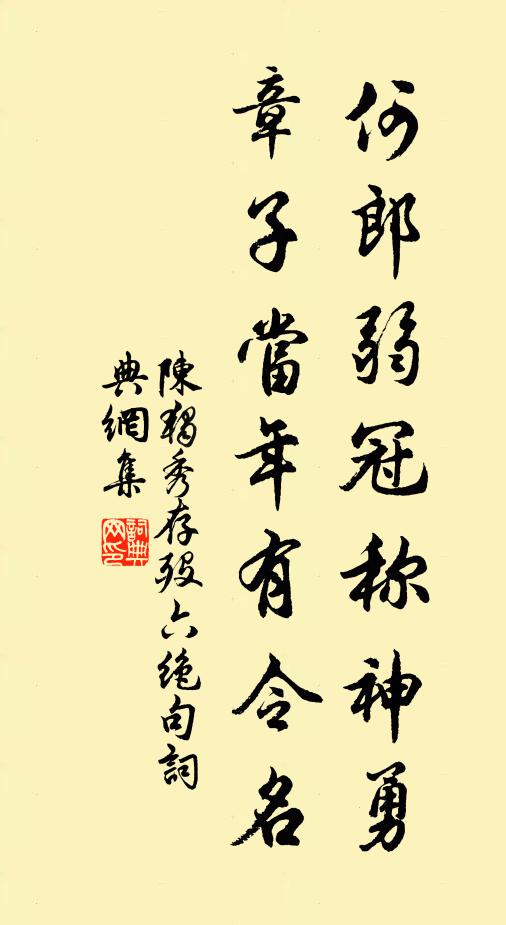 何郎弱冠称神勇
章子當年有令名
陳獨秀存歿六絶句詞
典網集
詞典網印